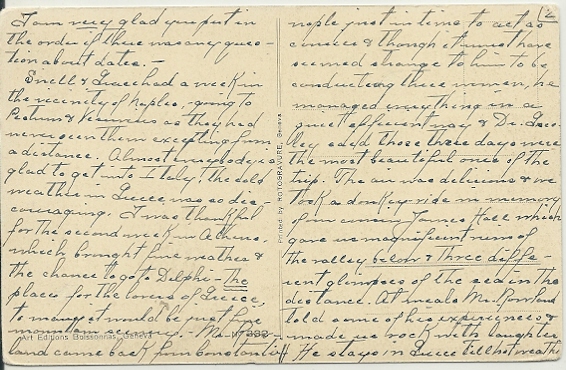 I am very glad you put in
the order if there was any ques-
tion about dates. —
Snell & Grace had a week in
the vicinity of Naples, going to
Pestum & Vesuvius as they had
never seen them excepting from
a distance. Almost everybody is
glad to get into Italy, the cold
weather in Greece was so dis-
couraging. I was thankful
for the second week in Athens,
which brought fine weather &
the chance to go to Delphi — The
places for the lovers of Greece,
to many it would be just fine
mountain scenery. — Mr.
land came back from Constanti
Art Editions Boissonnas, Geneva
Nº 332
Printed by ROTOGRAVURE, Geneva
2
nople just in time to act as
& though it must have
seemed strange to him to be
conducting three women, he
managed everything in a
quiet efficient way & Dr.
said those three days were
the most beautiful ones of the
trip. The air was delicious & we
took a donkey-ride in memory
of our cousin James Hall which
gave us magnificent views of
the valley below & three differ-
ent glimpses of the sea in the
distance. At meals Mr.
told some of his experiences &
made us rock with laughter
He stays in Greece till hot weather